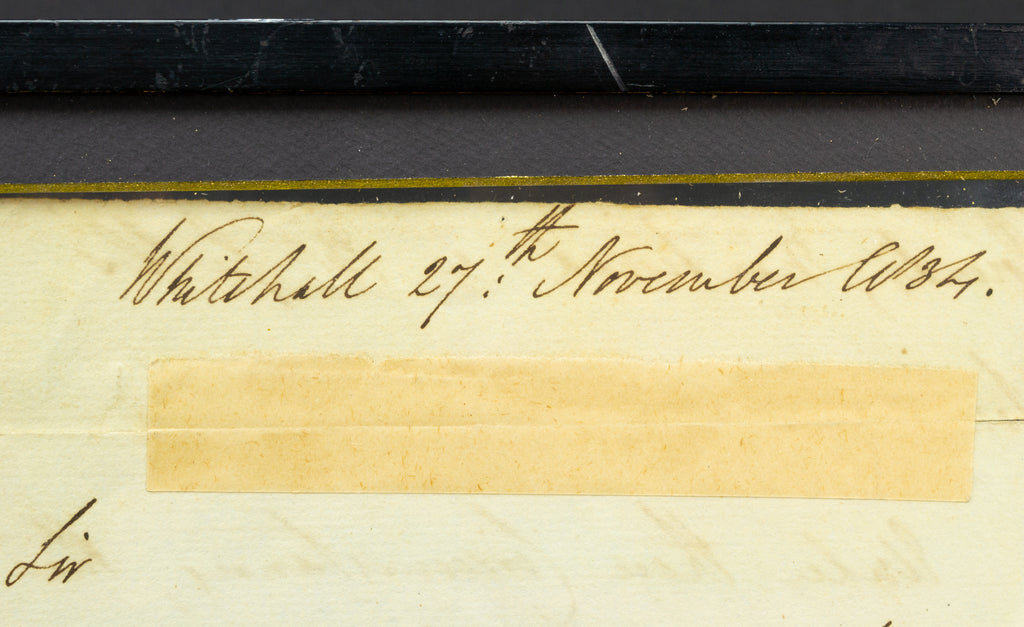 Whitehall 27:th November 1834.
Sir